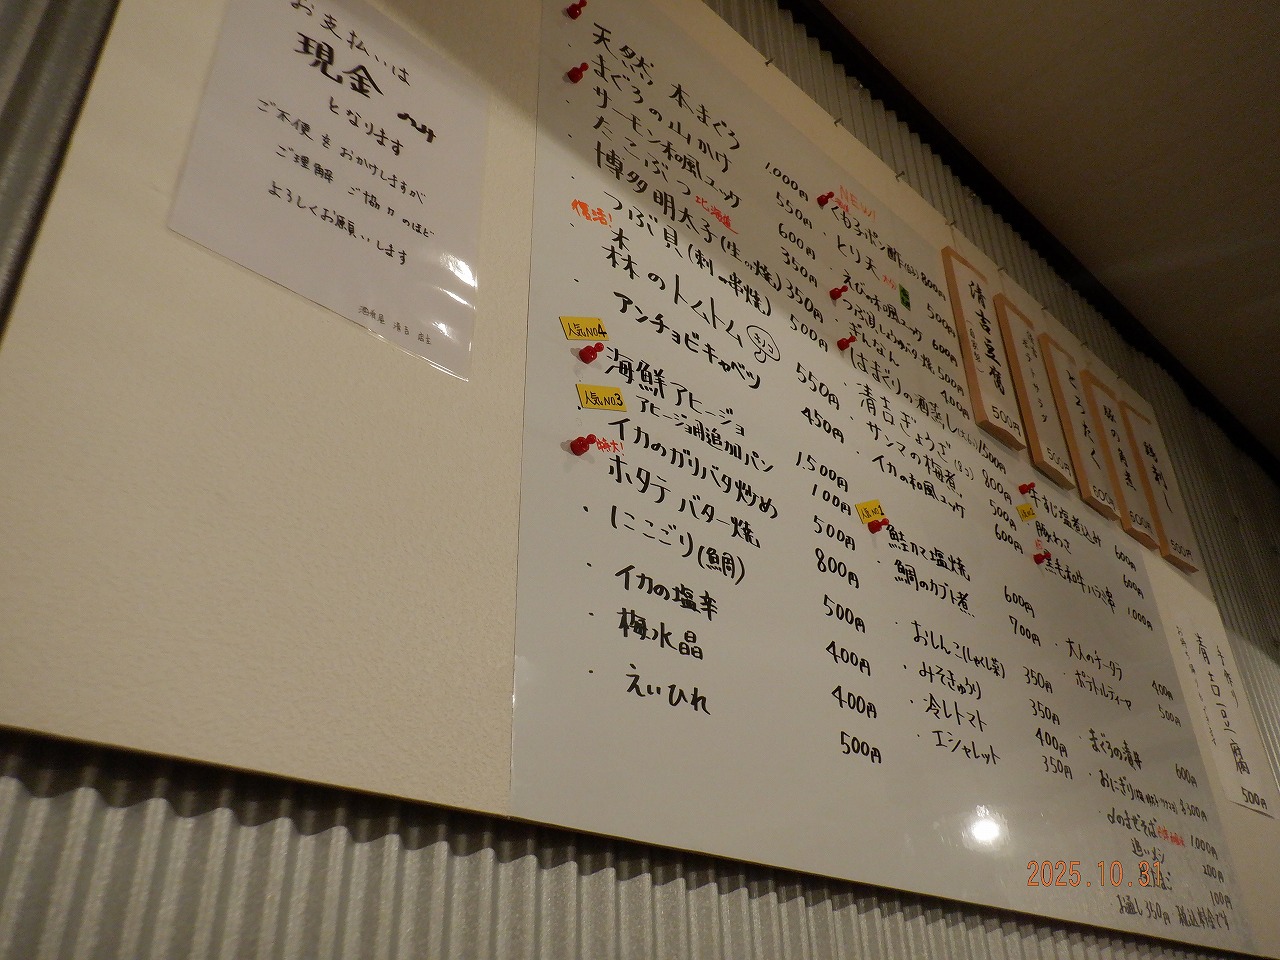 お支払いは
現金のみ
となります
ご不便をおかけしますが
ご理解ご協力のほど
よろしくお願いします
酒処屋 清吉 店主
・天然本まぐろ 1.000円
・まぐろの山かけ 550円
・サーモン和風ユッケ 600円
たこぶつ 北海道 350円
博多明太子(生or焼) 350円
・つぶ貝(刺or串焼) 500円
復活!
・森のトムトム キノコ 550円
・アンチョビキャベツ 450円
人気NO.4
海鮮アヒージョ 1.500円
アヒージョ用追加パン 100円
人気NO.3
・イカのガリバタ炒め 500円
特大!
ホタテバター焼 800円
・にこごり(鯛) 500円
・イカの塩辛 400円
・梅水晶 400円
・えいひれ 500円
NEW!
くもこポン酢 800円
・とり天 大分 500円
・えびの和風ユッケ 600円
つぶ貝しょうゆバター焼 500円
・ぎんなん 400円
はまぐりの酒蒸し 1500円
・清吉ぎょうざ(8コ) 800円
・サンマの梅煮 500円
・イカの和風ユッケ 600円
人気NO.1
鮭カマ塩焼 600円
・鯛のカブト煮 700円
・おしんこ(しゃくし菜) 350円
・みそきゅうり 350円
・冷しトマト 400円
・エシャレット 350円
牛すじ塩煮込み 600円
豚わさ 600円
黒毛和牛ハラミ串 1.000円
・大人のチータラ 400円
・ポテトルティーヤ 500円
・まぐろの漬丼 600円
・おにぎり
まぜそば 1000円
追いメシ 200円
100円
お通し350円 税込料金です
清吉豆腐
500円
ポテトサラダ
500円
とろたく
600円
豚の角煮
600円
500円
手作り
清吉豆腐
500円
2025.10.31